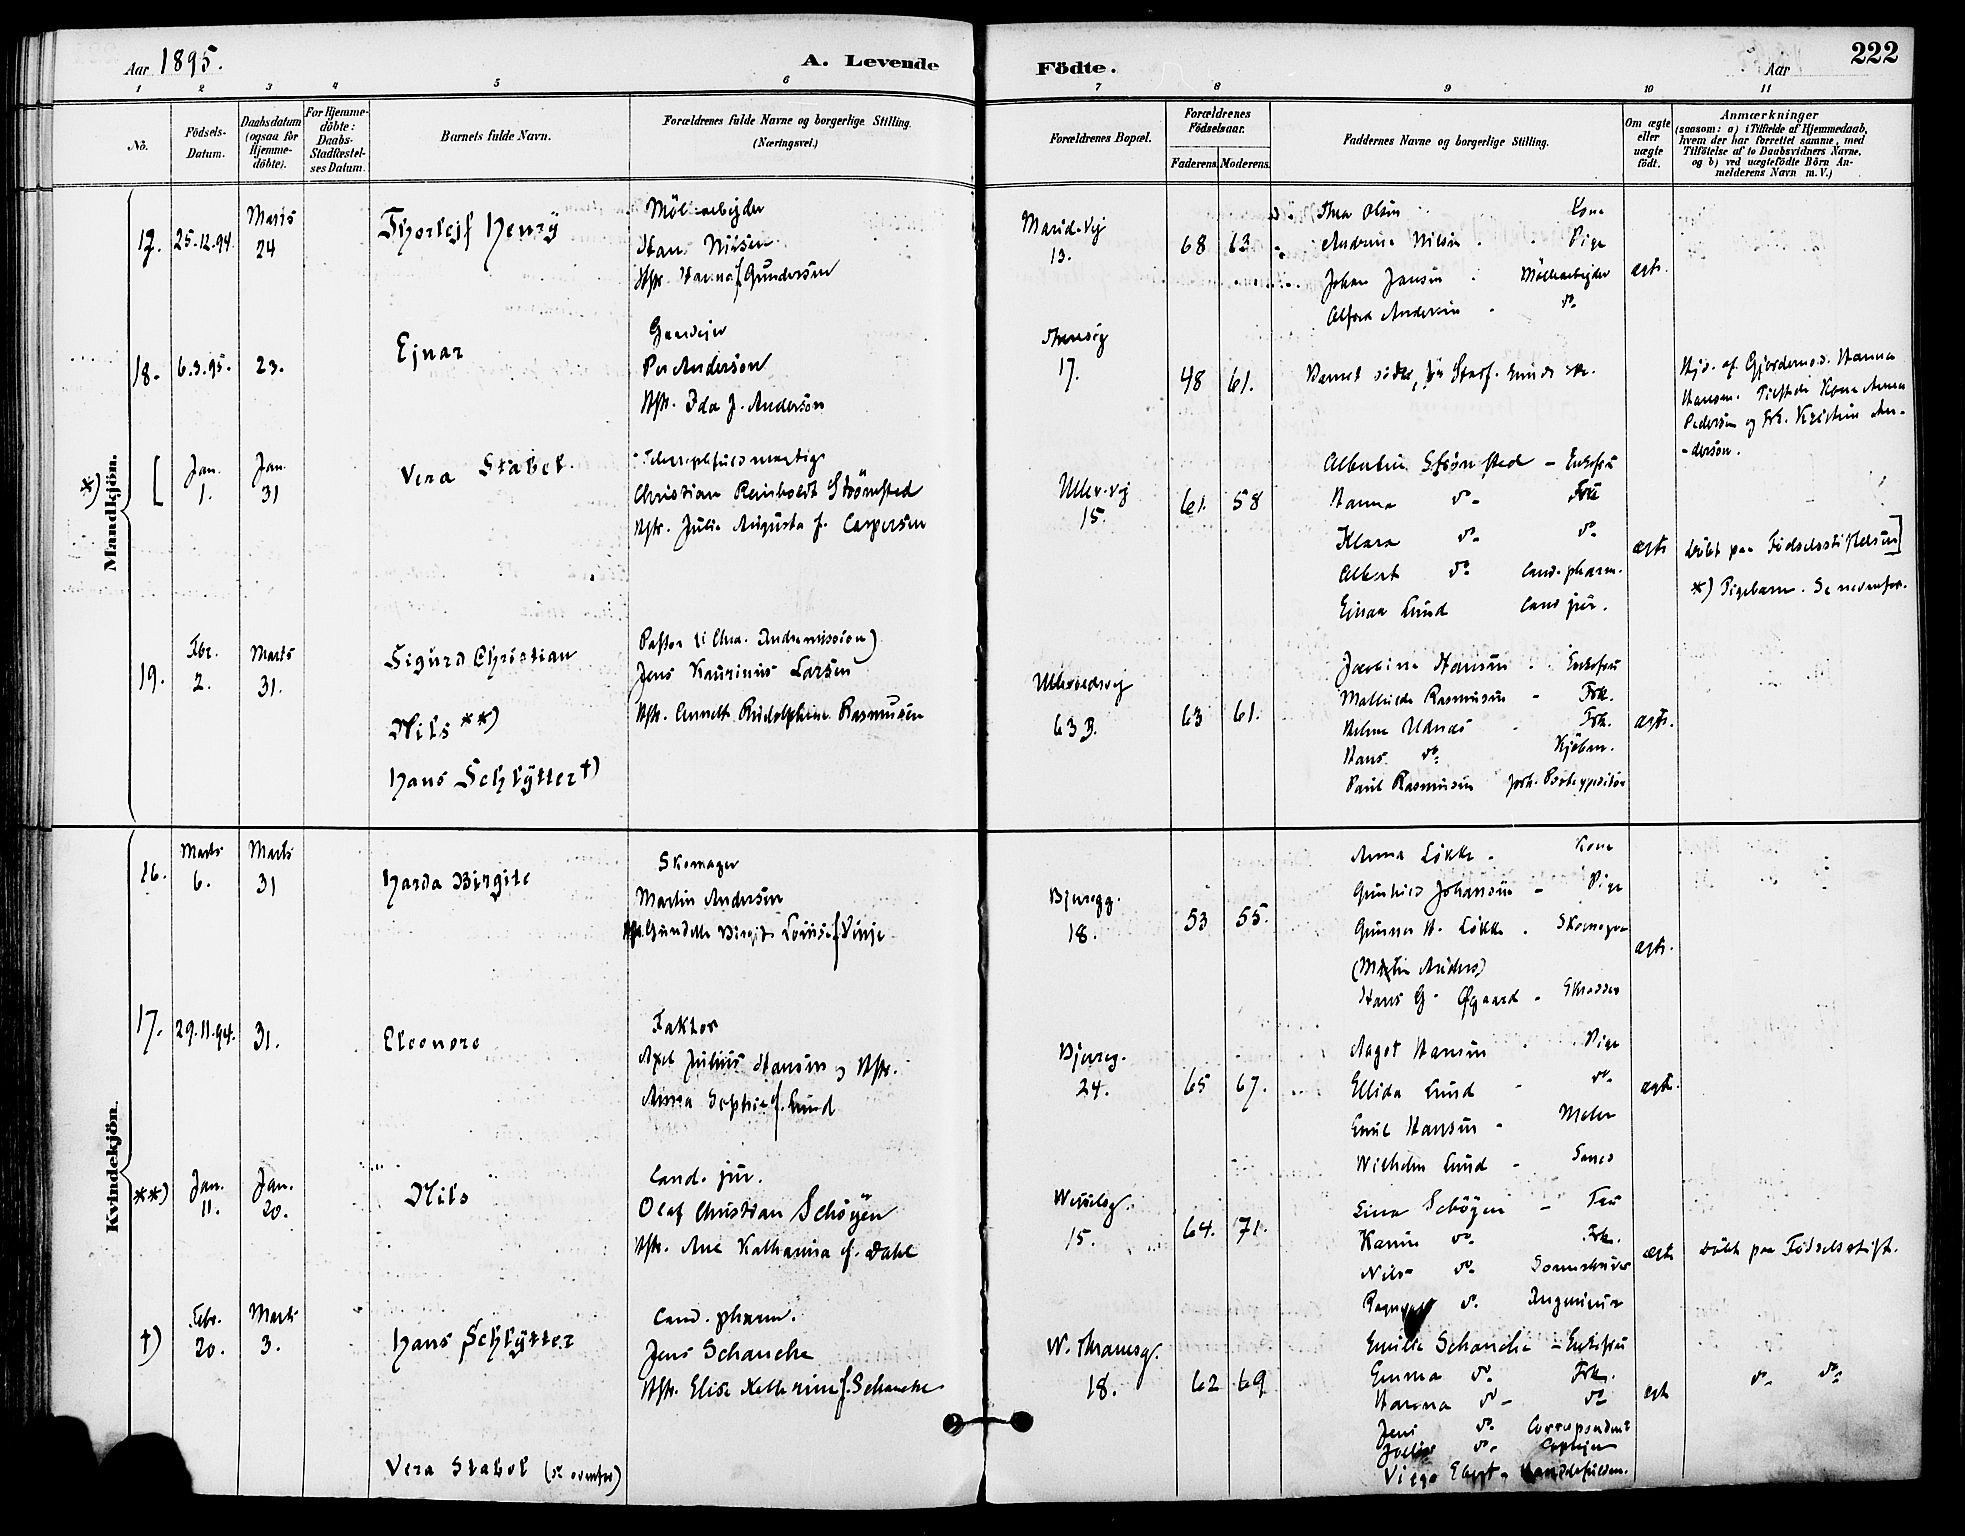 Aar 1895.
A. Levende
Födte.
Aar
222
1 2 3 4 5 6 7 8 9 10 11
No.
Födsels-Datum.
Daabsdatum (ogsaa for Hjemme-döbte).
For Hjemme-döbte: Daabs-Stadfæstel-ses Datum.
Barnets fulde Navn.
Forældrenes fulde Navne og borgerlige Stilling. (Næringsvei.)
Forældrenes Bopæl.
Forældrenes Födselsaar.
Faderens. Moderens.
Faddernes Navne og borgerlige Stilling.
Om ægte eller uægte födt.
Anmærkninger
(saasom: a) i Tilfælde af Hjemmedaab,
hvem der har forrettet samme, med
Tilföielse af to Daabsvidners Navne,
og b) ved uægtefödte Börn An-
melderens Navn m. V.)
Mandkjön.
17. 25.12.94. Marts 24
Thorleif Henry
Nilsen
Hstr. Hanna f. Gundersen
Marid.vej 13.
68 63
Thea Olsen Kone
Andrine Nilsen Pige
Johan Jansen Möllearbejder
Alfred Andersen do
ægte.
18. 6.3.95. 23.
Ejnar
Gaardejer
Per Anderson
Hstr. Ida J. Anderson
17.
48 61.
Hjd. af Gjordemod. Hanna
Hansen. Tilstede Kone Anna
Pedersen og Frk. Kristine An-
-derson.
*) [ Jan. 1. Jan. 31
Vera Stabel
Christian Reinholdt Strömsted
Hstr. Julie Augusta f. Caspersen
Ullev.vej 15.
61. 58
Albertine Strömsted - Enkefru
Hanna do - Frk
Klara do do
Albert do cand. pharm.
Einar Lund cand. jur.
ægte
döbt paa Födselsstiftelsen]
*) Pigebarn. Se nedenfor.
19. Fbr. 2. Marts 31.
Sigurd Christian
Nils **)
Hans Schlytter †)
Pastor (i Chra. Indremission)
Jens Laurinus Larsen
Hstr. Annette Rudolphine Rasmussen
Ullevoldsvej 63 B.
63 61.
Jacobine Hansen - Enkefru
Mathilde Rasmussen - Frk.
Udnæs - Frk.
Hans do Kjöbm.
Paul Rasmussen
ægte.
Kvindekjön.
16. Marts 6. Marts 31
Harda Birgite
Skomager
Martin Andersen
Hstr. Gundelle Birgite Lovise f. Vinje
Bjeregg. 18.
53 55.
Anna Lökke - Kone
Gunhild Johansen - Pige
Gunnar H. Lökke - Skomager
(Martin Anders)
Hans G. Øgaard - Skrædder
ægte.
17. 29.11.94. 31.
Eleonore
Faktor
Axel Julius Hansen og Hstr.
Anna Sophie f. Lund
Bjereg. 24.
65 67.
Aagot Hansen Pige
Ellida Lund - do
Emil Hansen - Maler
Wilhelm Lund -
ægte.
**) Jan. 11. Jan. 20.
Nils
Cand. jur.
Olaf Christian Schöyen
Hstr. Ane Katharina f. Dahl
Wesselsg. 15.
64. 71.
Lina Schöyen - Fru
Karen do Frk.
Nils do
do Ingeniör
ægte
döbt paa Födselsstift.
†) Febr. 20. Marts 3.
Hans Schlytter
Cand. pharm.
Jens Schanche
Hstr. Elise Kathrine f. Schanche
W. Thranesg. 18.
62 69
Emilie Schanche - Enkefru
Emma do Frk.
Hanna do - do
Jens do Correspondent
do
ægte
do do
Vera Stabel (se ovenfor)